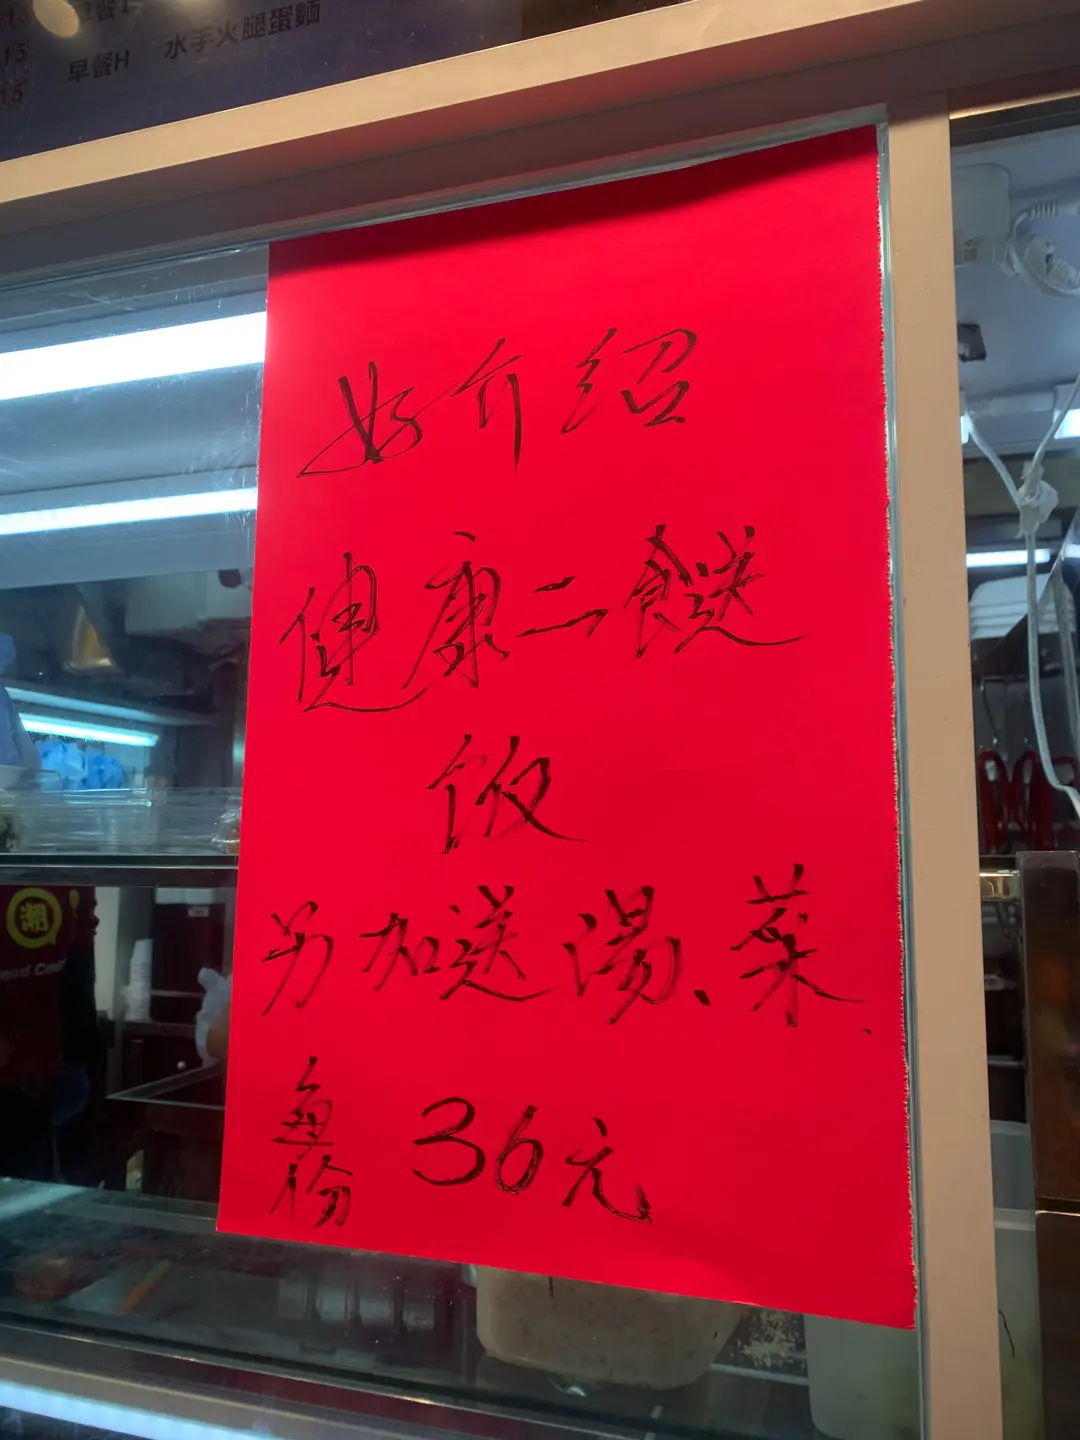 早餐H 水手火腿蛋麵
好介紹
健康二餸
飯
另加送湯、菜、
每份 36元
潮